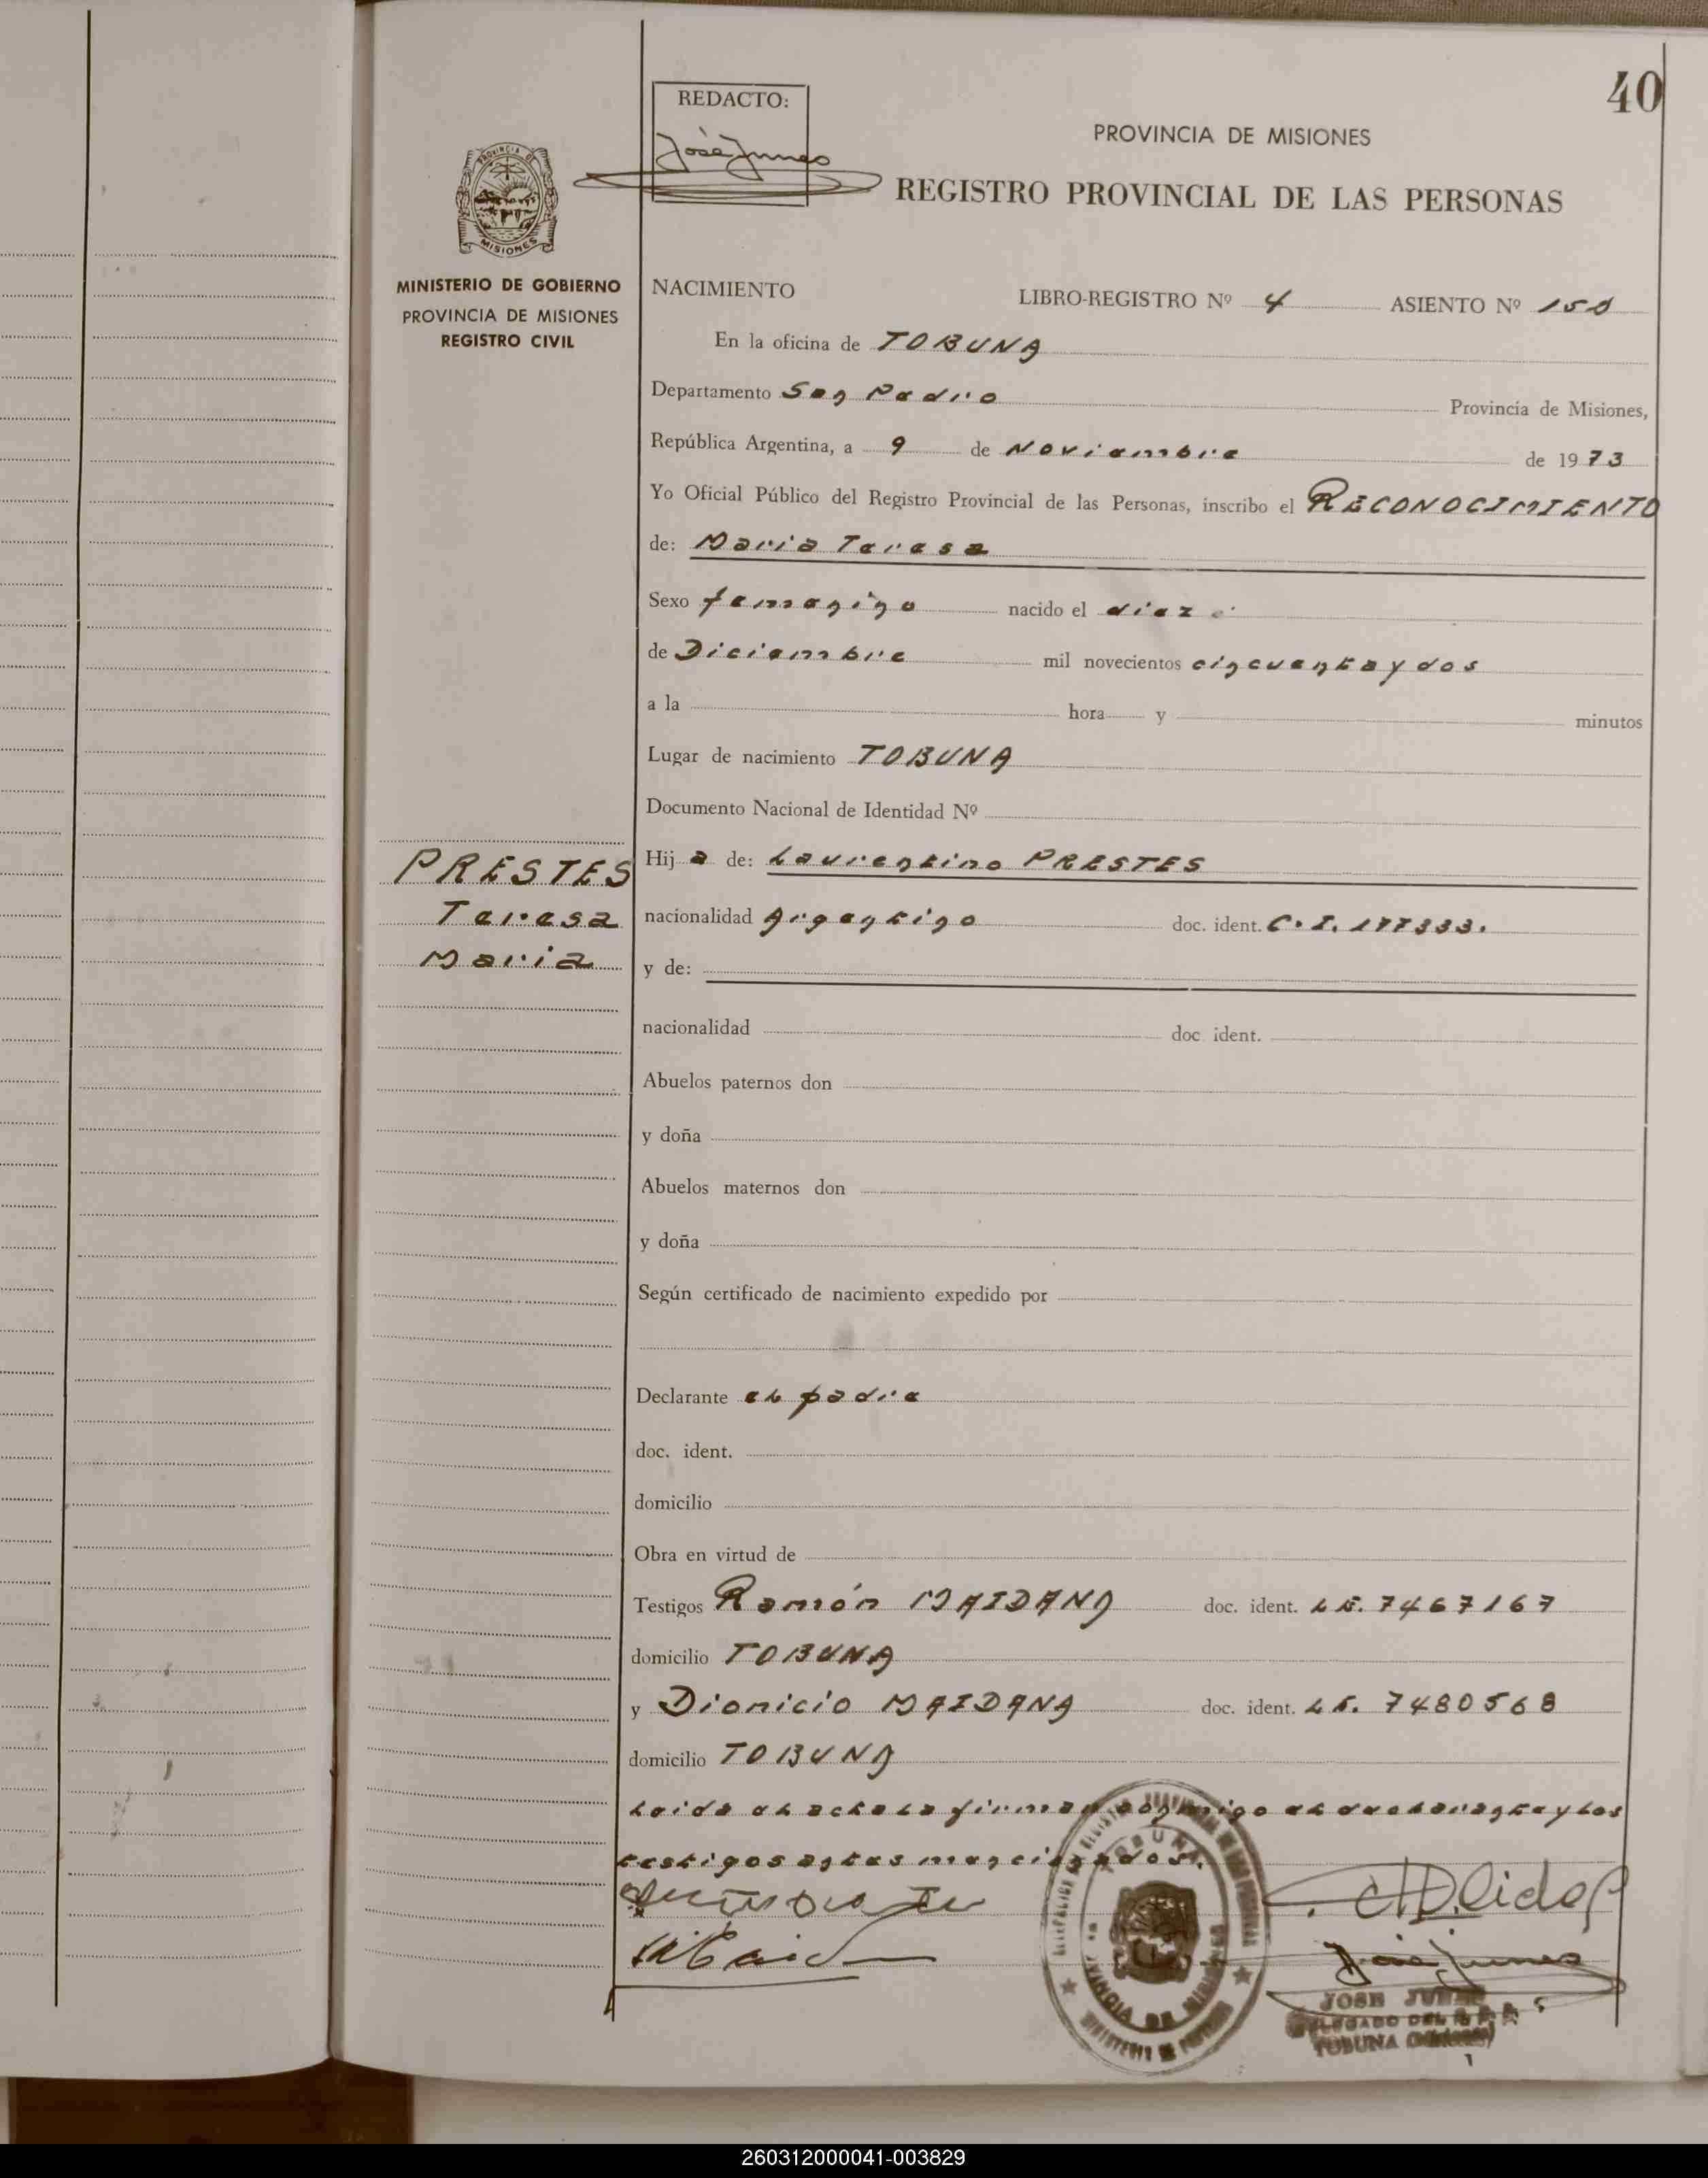 40
REDACTO:
José Junes
PROVINCIA DE MISIONES
REGISTRO PROVINCIAL DE LAS PERSONAS
PROVINCIA DE
MISIONES
MINISTERIO DE GOBIERNO
PROVINCIA DE MISIONES
REGISTRO CIVIL
NACIMIENTO LIBRO-REGISTRO Nº 4 ASIENTO Nº 150
En la oficina de TOBUNA
Departamento San Pedro Provincia de Misiones,
República Argentina, a 9 de Noviembre de 1973
Yo Oficial Público del Registro Provincial de las Personas, inscribo el RECONOCIMIENTO
de: Maria Teresa
Sexo femenino nacido el diez
de Diciembre mil novecientos cincuenta y dos
a la hora y minutos
Lugar de nacimiento TOBUNA
Documento Nacional de Identidad Nº
PRESTES
Teresa
Maria
Hij a de: Laurentino PRESTES
nacionalidad Argentino doc. ident. C.I. 177333.
y de:
nacionalidad doc ident.
Abuelos paternos don
y doña
Abuelos maternos don
y doña
Según certificado de nacimiento expedido por
Declarante el padre
doc. ident.
domicilio
Obra en virtud de
Testigos Ramón MAIDANA doc. ident. L.E. 7467167
domicilio TOBUNA
y Dionicio MAIDANA doc. ident. L.E. 7480568
domicilio TOBUNA
Leida el acta la firman conmigo el declarante y los
testigos antes mencionados.
TOBUNA
PROVINCIA DE MISIONES
José Junes
JOSE JUNES
DELEGADO DEL R. P. P.
TOBUNA (Misiones)
260312000041-003829